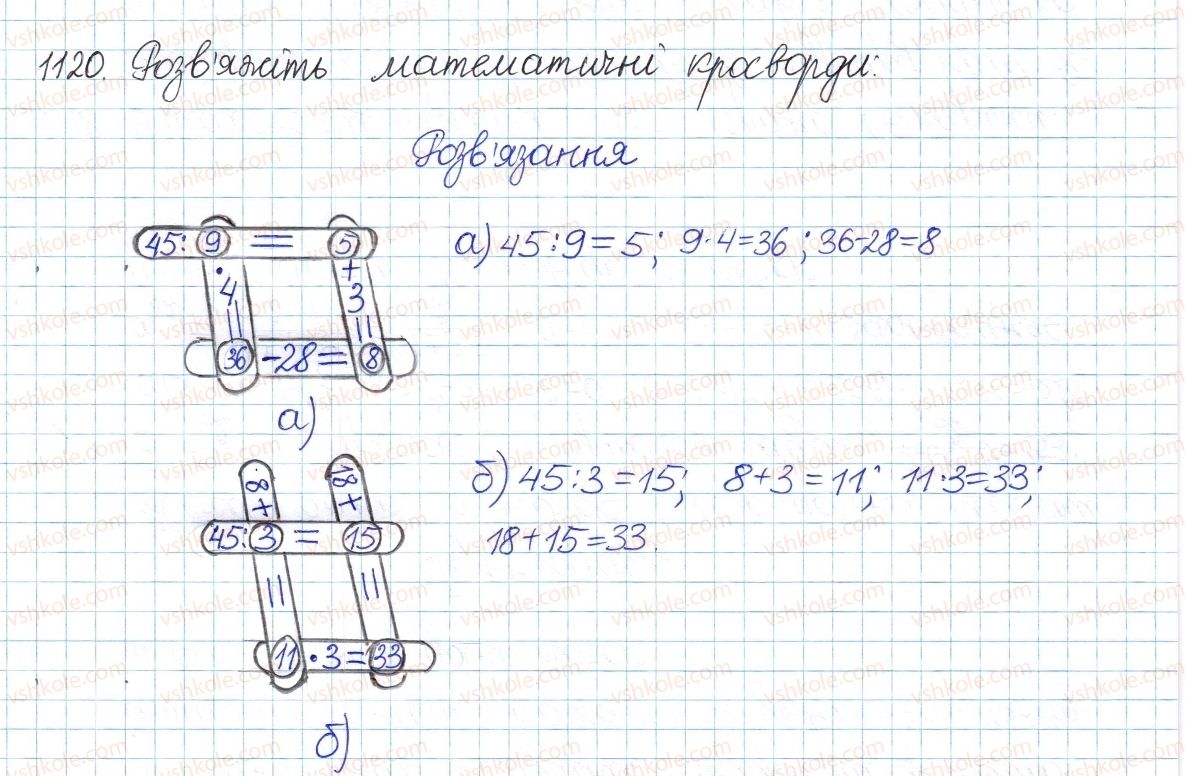 1120. Розв'яжіть математичні кросворди:
Розв'язання
45: 9 = 5
· 4 = + 3 =
36 -28= 8
а)
а) 45:9=5; 9·4=36; 36-28=8
8+ 18+
45: 3 = 15
= =
11 ·3= 33
б)
б) 45:3=15; 8+3=11; 11·3=33;
18+15=33.